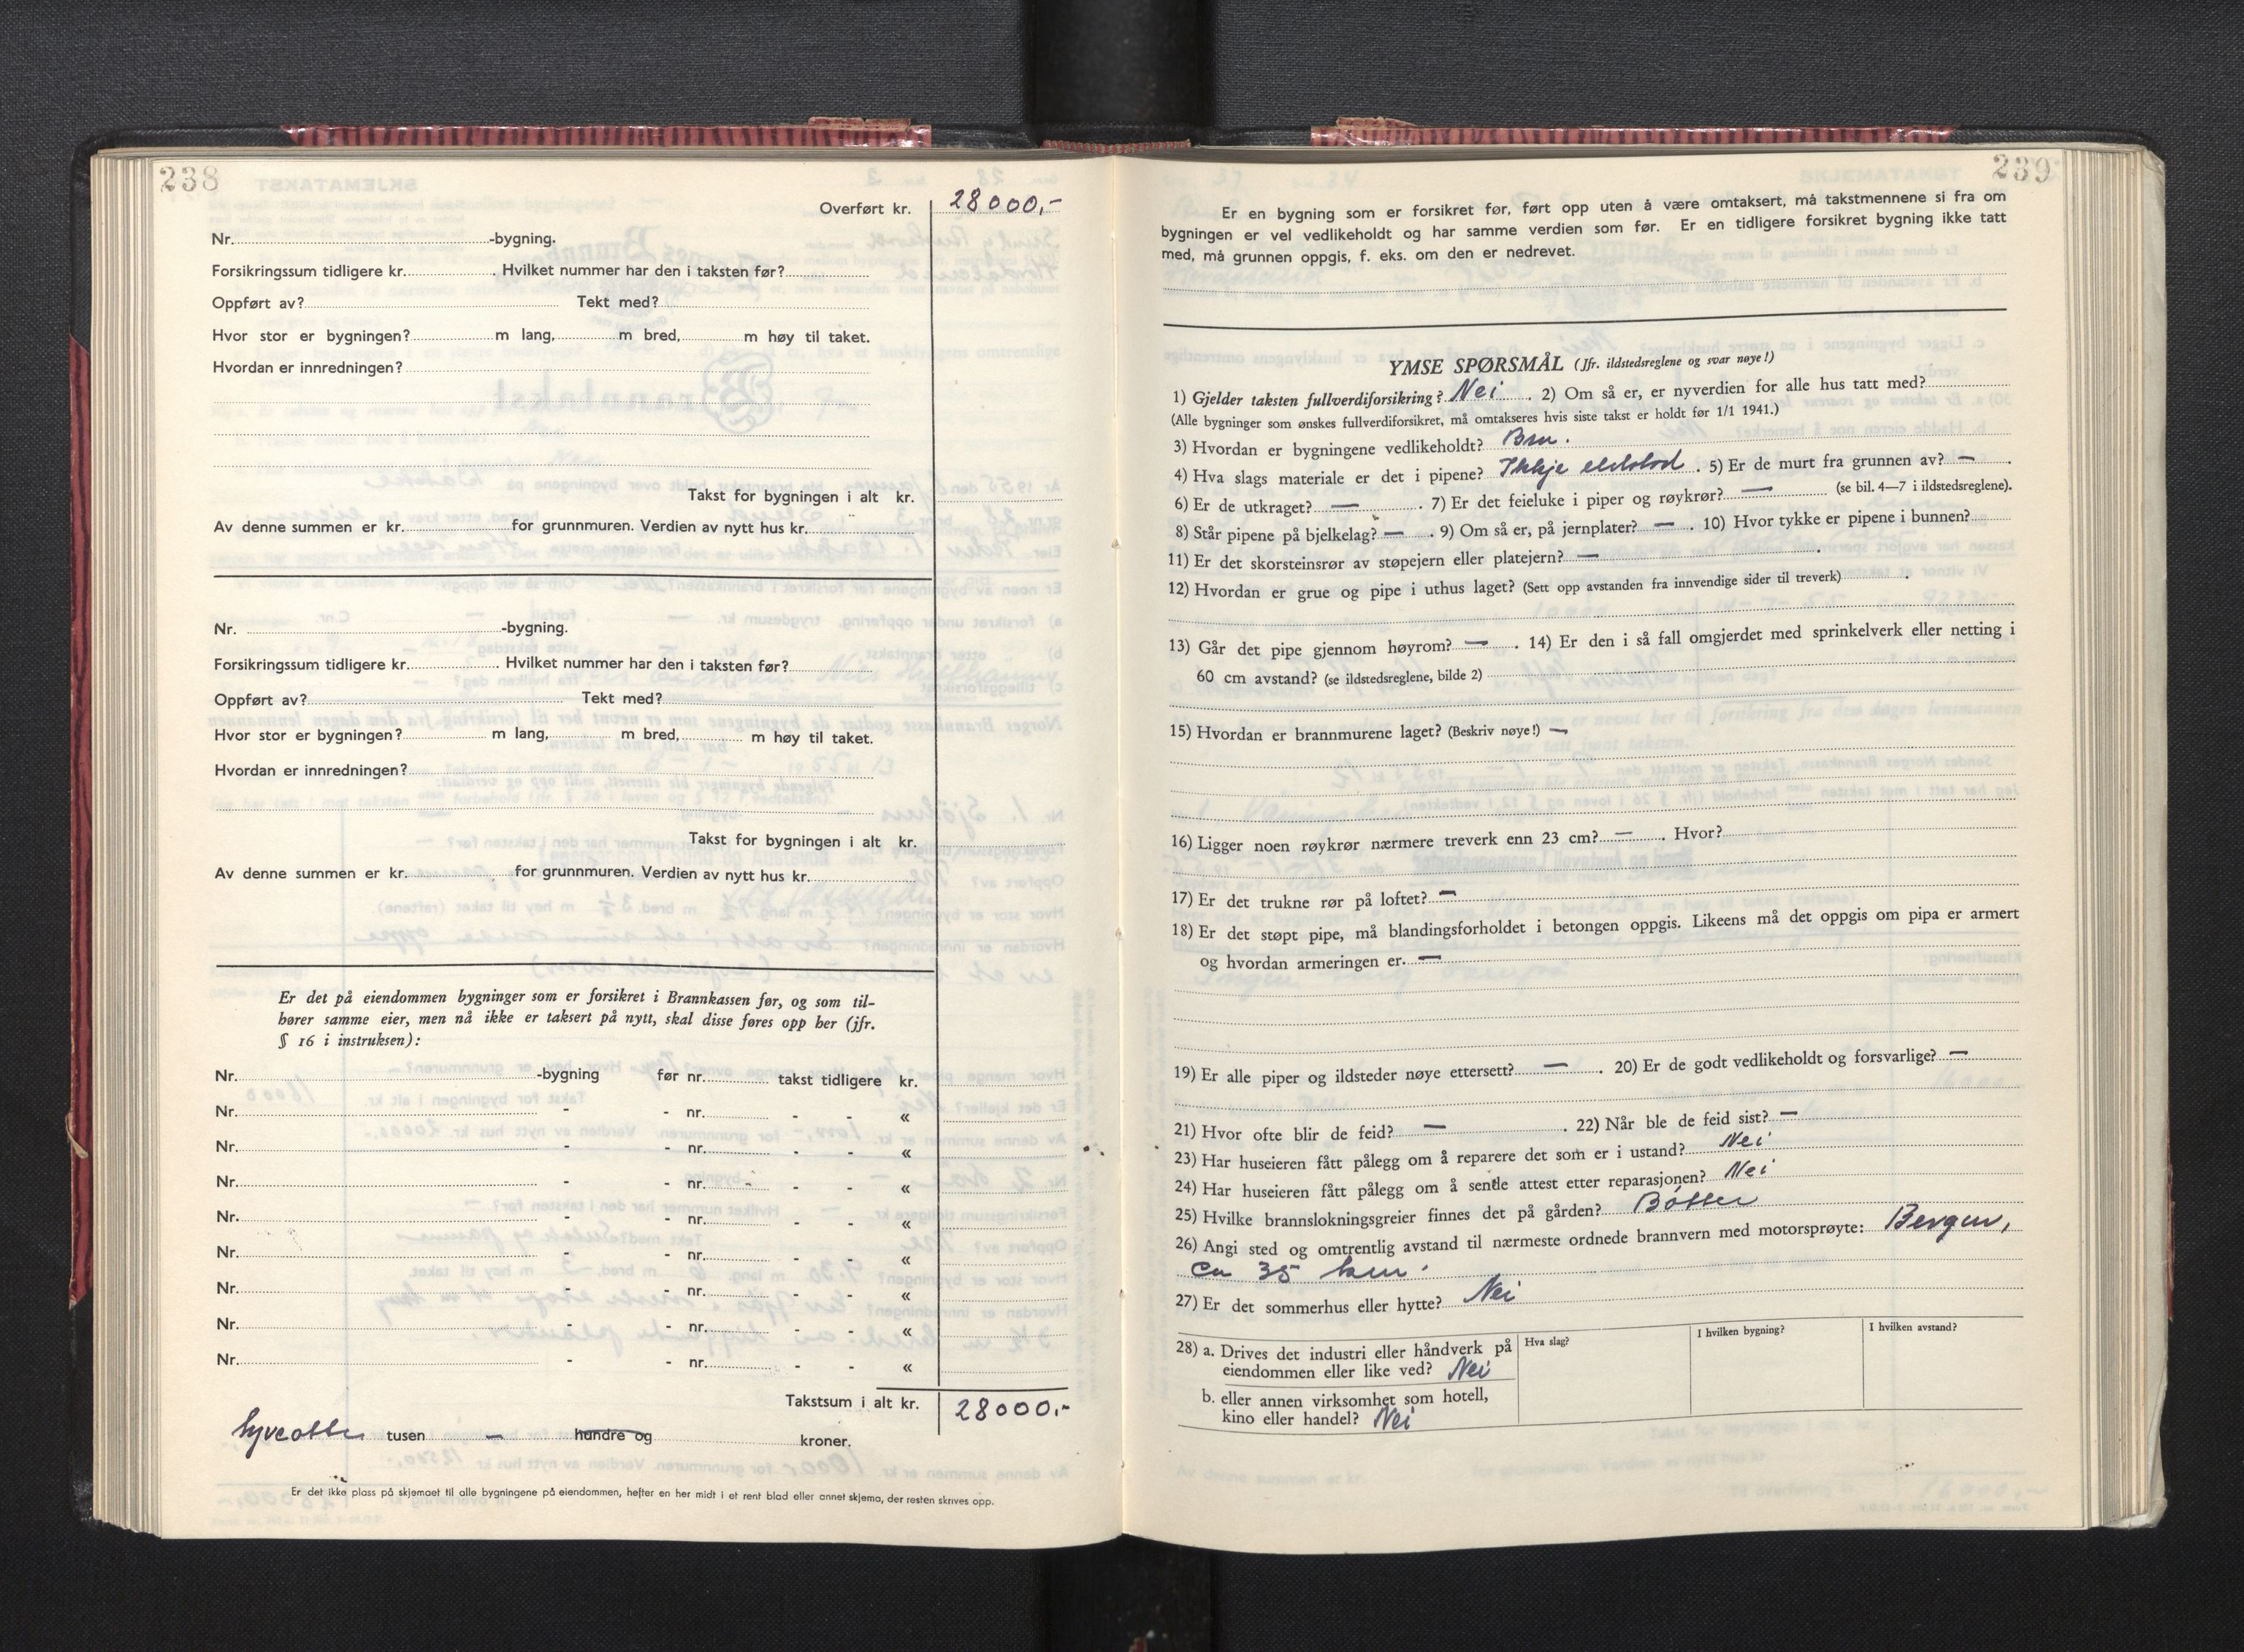 238
Overført kr. 28000,-
Nr. -bygning.
Forsikringssum tidligere kr. . Hvilket nummer har den i taksten før?
Oppført av? Tekt med?
Hvor stor er bygningen? m lang, m bred, m høy til taket.
Hvordan er innredningen?
Takst for bygningen i alt kr.
Av denne summen er kr. for grunnmuren. Verdien av nytt hus kr.
Nr. -bygning.
Forsikringssum tidligere kr. . Hvilket nummer har den i taksten før?
Oppført av? Tekt med?
Hvor stor er bygningen? m lang, m bred, m høy til taket.
Hvordan er innredningen?
Takst for bygningen i alt kr.
Av denne summen er kr. for grunnmuren. Verdien av nytt hus kr.
Er det på eiendommen bygninger som er forsikret i Brannkassen før, og som til-
hører samme eier, men nå ikke er taksert på nytt, skal disse føres opp her (jfr.
§ 16 i instruksen):
Nr. -bygning før nr. takst tidligere kr.
Nr. - - nr. - - «
Nr. - - nr. - - «
Nr. - - nr. - - «
Nr. - - nr. - - «
Nr. - - nr. - - «
Nr. - - nr. - - «
Nr. - - nr. - - «
Nr. - - nr. - - «
Takstsum i alt kr. 28000,-
tusen — hundre og kroner.
Er det ikke plass på skjemaet til alle bygningene på eiendommen, hefter en her midt i et rent blad eller annet skjema, der resten skrives opp.
239
Er en bygning som er forsikret før, ført opp uten å være omtaksert, må takstmennene si fra om
bygningen er vel vedlikeholdt og har samme verdien som før. Er en tidligere forsikret bygning ikke tatt
med, må grunnen oppgis, f. eks. om den er nedrevet.
YMSE SPØRSMÅL (Jfr. ildstedsreglene og svar nøye!)
1) Gjelder taksten fullverdiforsikring? Nei . 2) Om så er, er nyverdien for alle hus tatt med?
(Alle bygninger som ønskes fullverdiforsikret, må omtakseres hvis siste takst er holdt før 1/1 1941.)
3) Hvordan er bygningene vedlikeholdt? Bra.
4) Hva slags materiale er det i pipene? Ikkje eldstad . 5) Er de murt fra grunnen av? — .
6) Er de utkraget? — . 7) Er det feieluke i piper og røykrør? — (se bil. 4—7 i ildstedsreglene).
8) Står pipene på bjelkelag? — . 9) Om så er, på jernplater? — . 10) Hvor tykke er pipene i bunnen?
11) Er det skorsteinsrør av støpejern eller platejern? — .
12) Hvordan er grue og pipe i uthus laget? (Sett opp avstanden fra innvendige sider til treverk) .
13) Går det pipe gjennom høyrom? — . 14) Er den i så fall omgjerdet med sprinkelverk eller netting i
60 cm avstand? (se ildstedsreglene, bilde 2)
15) Hvordan er brannmurene laget? (Beskriv nøye!) —
16) Ligger noen røykrør nærmere treverk enn 23 cm? — . Hvor?
17) Er det trukne rør på loftet? —
18) Er det støpt pipe, må blandingsforholdet i betongen oppgis. Likeens må det oppgis om pipa er armert
og hvordan armeringen er. —
19) Er alle piper og ildsteder nøye ettersett? — . 20) Er de godt vedlikeholdt og forsvarlige? —
21) Hvor ofte blir de feid? — . 22) Når ble de feid sist? —
23) Har huseieren fått pålegg om å reparere det som er i ustand? Nei
24) Har huseieren fått pålegg om å sende attest etter reparasjonen? Nei
25) Hvilke brannslokningsgreier finnes det på gården? Bøtter
26) Angi sted og omtrentlig avstand til nærmeste ordnede brannvern med motorsprøyte: Bergen,
ca 35 km.
27) Er det sommerhus eller hytte? Nei
28) a. Drives det industri eller håndverk på
eiendommen eller like ved? Nei
b. eller annen virksomhet som hotell,
kino eller handel? Nei
Hva slag?
I hvilken bygning?
I hvilken avstand?